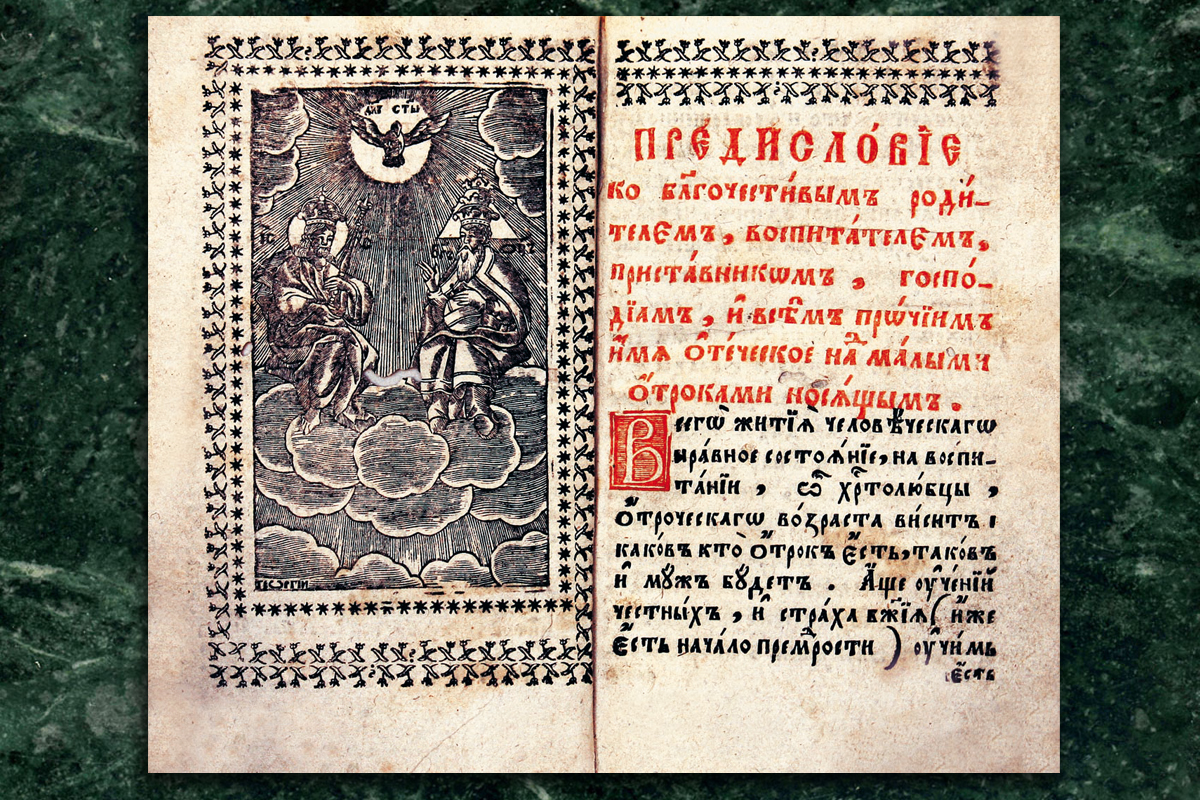 дх҃ъ ст҃ы
І҃С
ГЕѠРГІИ
ПРЕДИСЛО́ВЇЕ
ко бл҃гочести́вымъ роди́-
телємъ, воспита́телємъ,
приста́вникѡмъ, госпо́-
дїамъ, и҆ всѣ̑мъ прѡ́чїимъ
и҆́мя ѻ҆те́ческое над̾ ма́лыми
ѻ҆́троками нося́щымъ.
Всегѡ̀ житїѧ̀ человѣ́ческагѡ
ѵра́вное состоѧ́нїе, на воспи-
та́нїи, ѽ хрⷭ҇толю́бцы,
ѻ҆́троческагѡ во́зраста ви́ситъ:
како́въ кто̀ ѻ҆́трокъ є҆́сть, тако́въ
и҆ мꙋ́жъ бꙋ́детъ. А҆́ще ᲂу҆че́нїй
че́стны́хъ, и҆ стра́ха бж҃їѧ (и҆́же
є҆́сть нача́ло премⷣрости) ᲂу҆чи́мь
є҆́сть